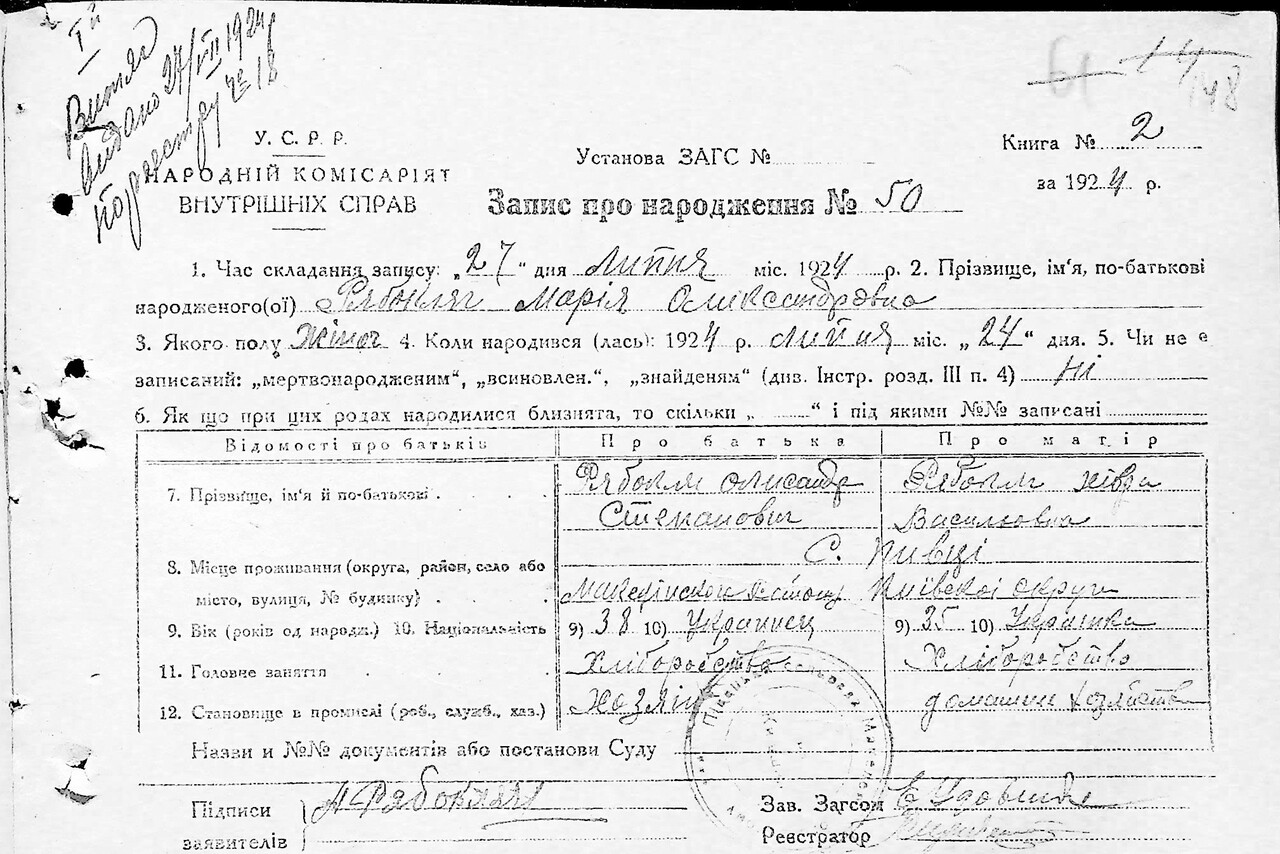 Витяг
видано 27/VII 1924 р
по реєстру № 18
148
У. С. Р. Р.
НАРОДНІЙ КОМІСАРІЯТ
ВНУТРІШНІХ СПРАВ
Установа ЗАГС №
Книга № 2
за 1924 р.
Запис про народження № 50
1. Час складання запису: „27“ дня липня міс. 1924 р. 2. Прізвище, ім'я, по-батькові
народженого(ої) Рябокляч Марія Олександровна
3. Якого полу жіноч 4. Коли народився (лась): 1924 р. липня міс. „24“ дня. 5. Чи не є
записаний: „мертвонародженим“, „всиновлен.“, „знайденям“ (див. Інстр. розд. III п. 4) ні
6. Як що при цих родах народилися близнята, то скільки „ “ і під якими №№ записані
Відомості про батьків Про батька Про матір
7. Прізвище, ім'я й по-батькові Рябокляч Олександр Рябокляч
Степанович Васильовна
8. Місце проживання (округа, район, село або с. Пивці
місто, вулиця, № будинку) Київскої округи
9. Вік (років од народж.) 10. Національність 9) 38 10) Украинец 9) 35 10) Украинка
11. Головне заняття Хліборобство Хліборобство
12. Становище в промислі (роб., служб., хаз.) Хозяїн домашнє хозяйство
Назви и №№ документів або постанови Суду
Підписи
заявителів
А Рябокляч
Зав. Загсом
Реєстратор